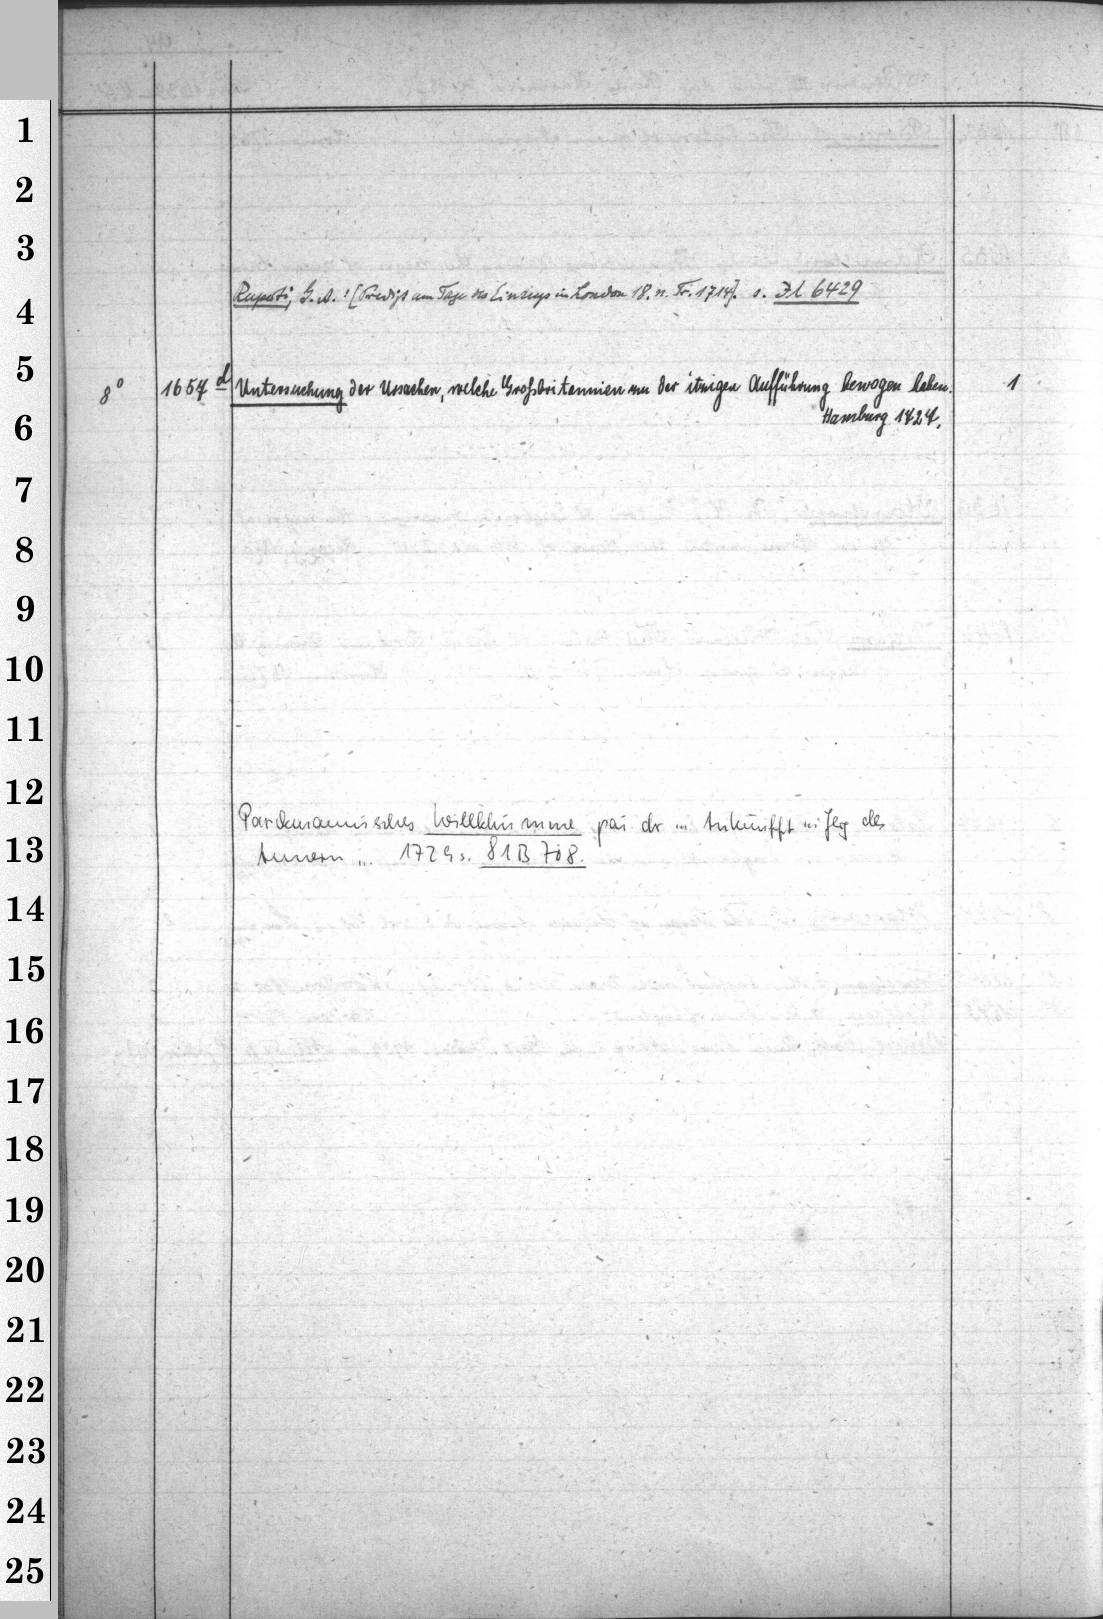 1
2
3
4
Ruperti, G. A.: [Predigt am Tage des Einzugs in London 18. n. Tr. 1714]. s. Fl 6429
5
8° 1657 d Untersuchung der Ursachen, welche Großbritannien zu der itzigen Aufführung bewogen haben. 1
6
Hamburg 1727.
7
8
9
10
11
12
Willkumme der ... Ankunfft des
13
... 1729 s. 81B 708.
14
15
16
17
18
19
20
21
22
23
24
25